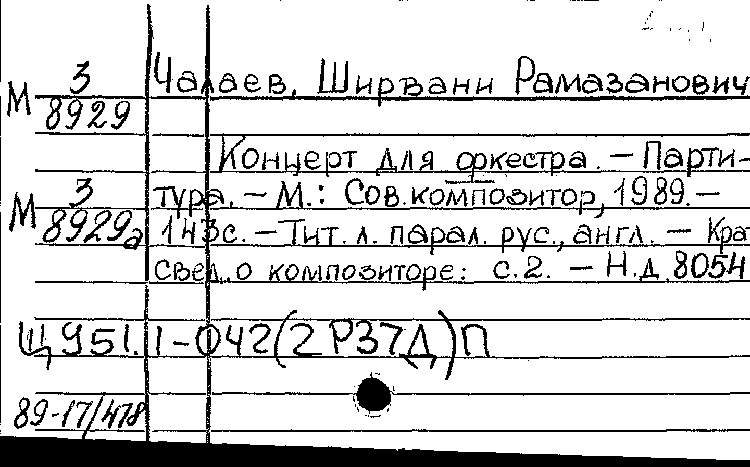 М 3/8929 Чалаев, Ширвани Рамазанович
Концерт для оркестра. – Парти-
М 3/8929а тура. – М.: Сов.композитор, 1989. –
143с. – Тит. л. парал. рус., англ. – Крат
свед. о композиторе: с.2. – Н.д 8054
Щ951.1-042(2Р37Д)П
89-17/478